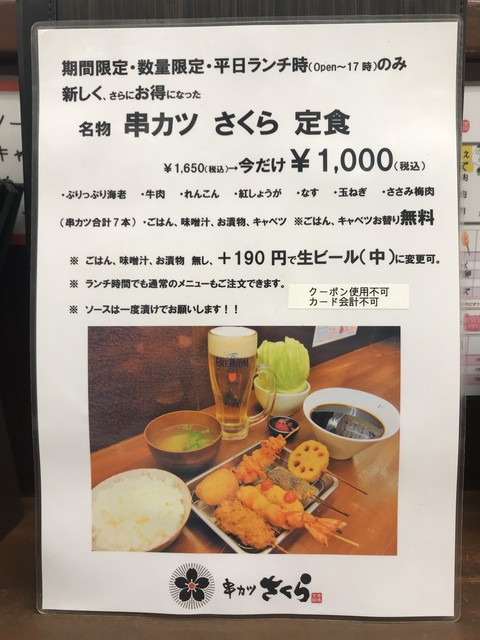 期間限定・数量限定・平日ランチ時(Open～17時)のみ
新しく、さらにお得になった
名物 串カツ さくら 定食
¥1,650(税込)→今だけ ¥1,000(税込)
・ぷりっぷり海老 ・牛肉 ・れんこん ・紅しょうが ・なす ・玉ねぎ ・ささみ梅肉
(串カツ合計7本) ・ごはん、味噌汁、お漬物、キャベツ ※ごはん、キャベツお替り無料
※ ごはん、味噌汁、お漬物 無し、＋190円で生ビール(中)に変更可。
※ ランチ時間でも通常のメニューもご注文できます。
クーポン使用不可
カード会計不可
※ ソースは一度漬けでお願いします！！
串カツ さくら